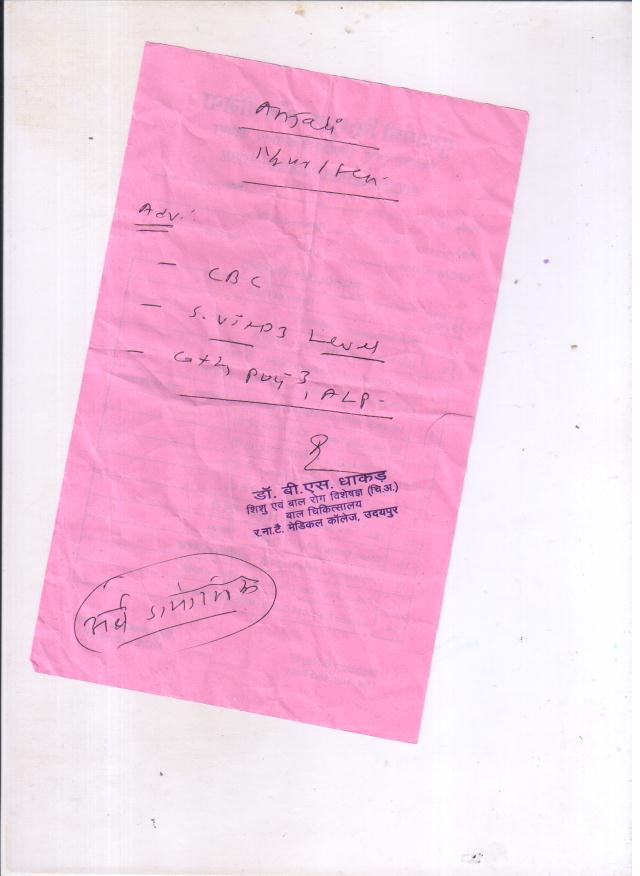 Anjali
1½ yr / Fem
Adv:
- CBC
- S. Vit D3 Level
- Ca++, PO4-3, ALP-
डॉ. बी.एस. धाकड़
शिशु एवं बाल रोग विशेषज्ञ (चि.अ.)
बाल चिकित्सालय
र.ना.टै. मेडिकल कॉलेज, उदयपुर